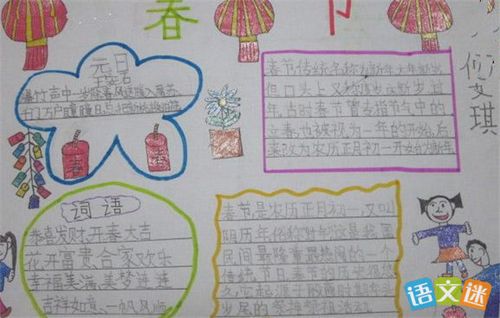 春节
何文琪
元日
王安石
爆竹声中一岁除春风送暖入屠苏
千门万户曈曈日总
春
春节传统名称为新年大年新岁
但口头上又称度岁
年古时春节曾专指节气中的
立春也被视为一年的开始后
来改为农历正月初一开始为新年
词语
恭喜发财开春大吉
花开富贵合家欢乐
幸福美满美梦连连
吉祥如意一帆风顺
春节是农历正月初一又叫
阴历年俗称
民间最隆重最热闹的一个
传统节日春节的
岁尾的祭
活动
语文迷